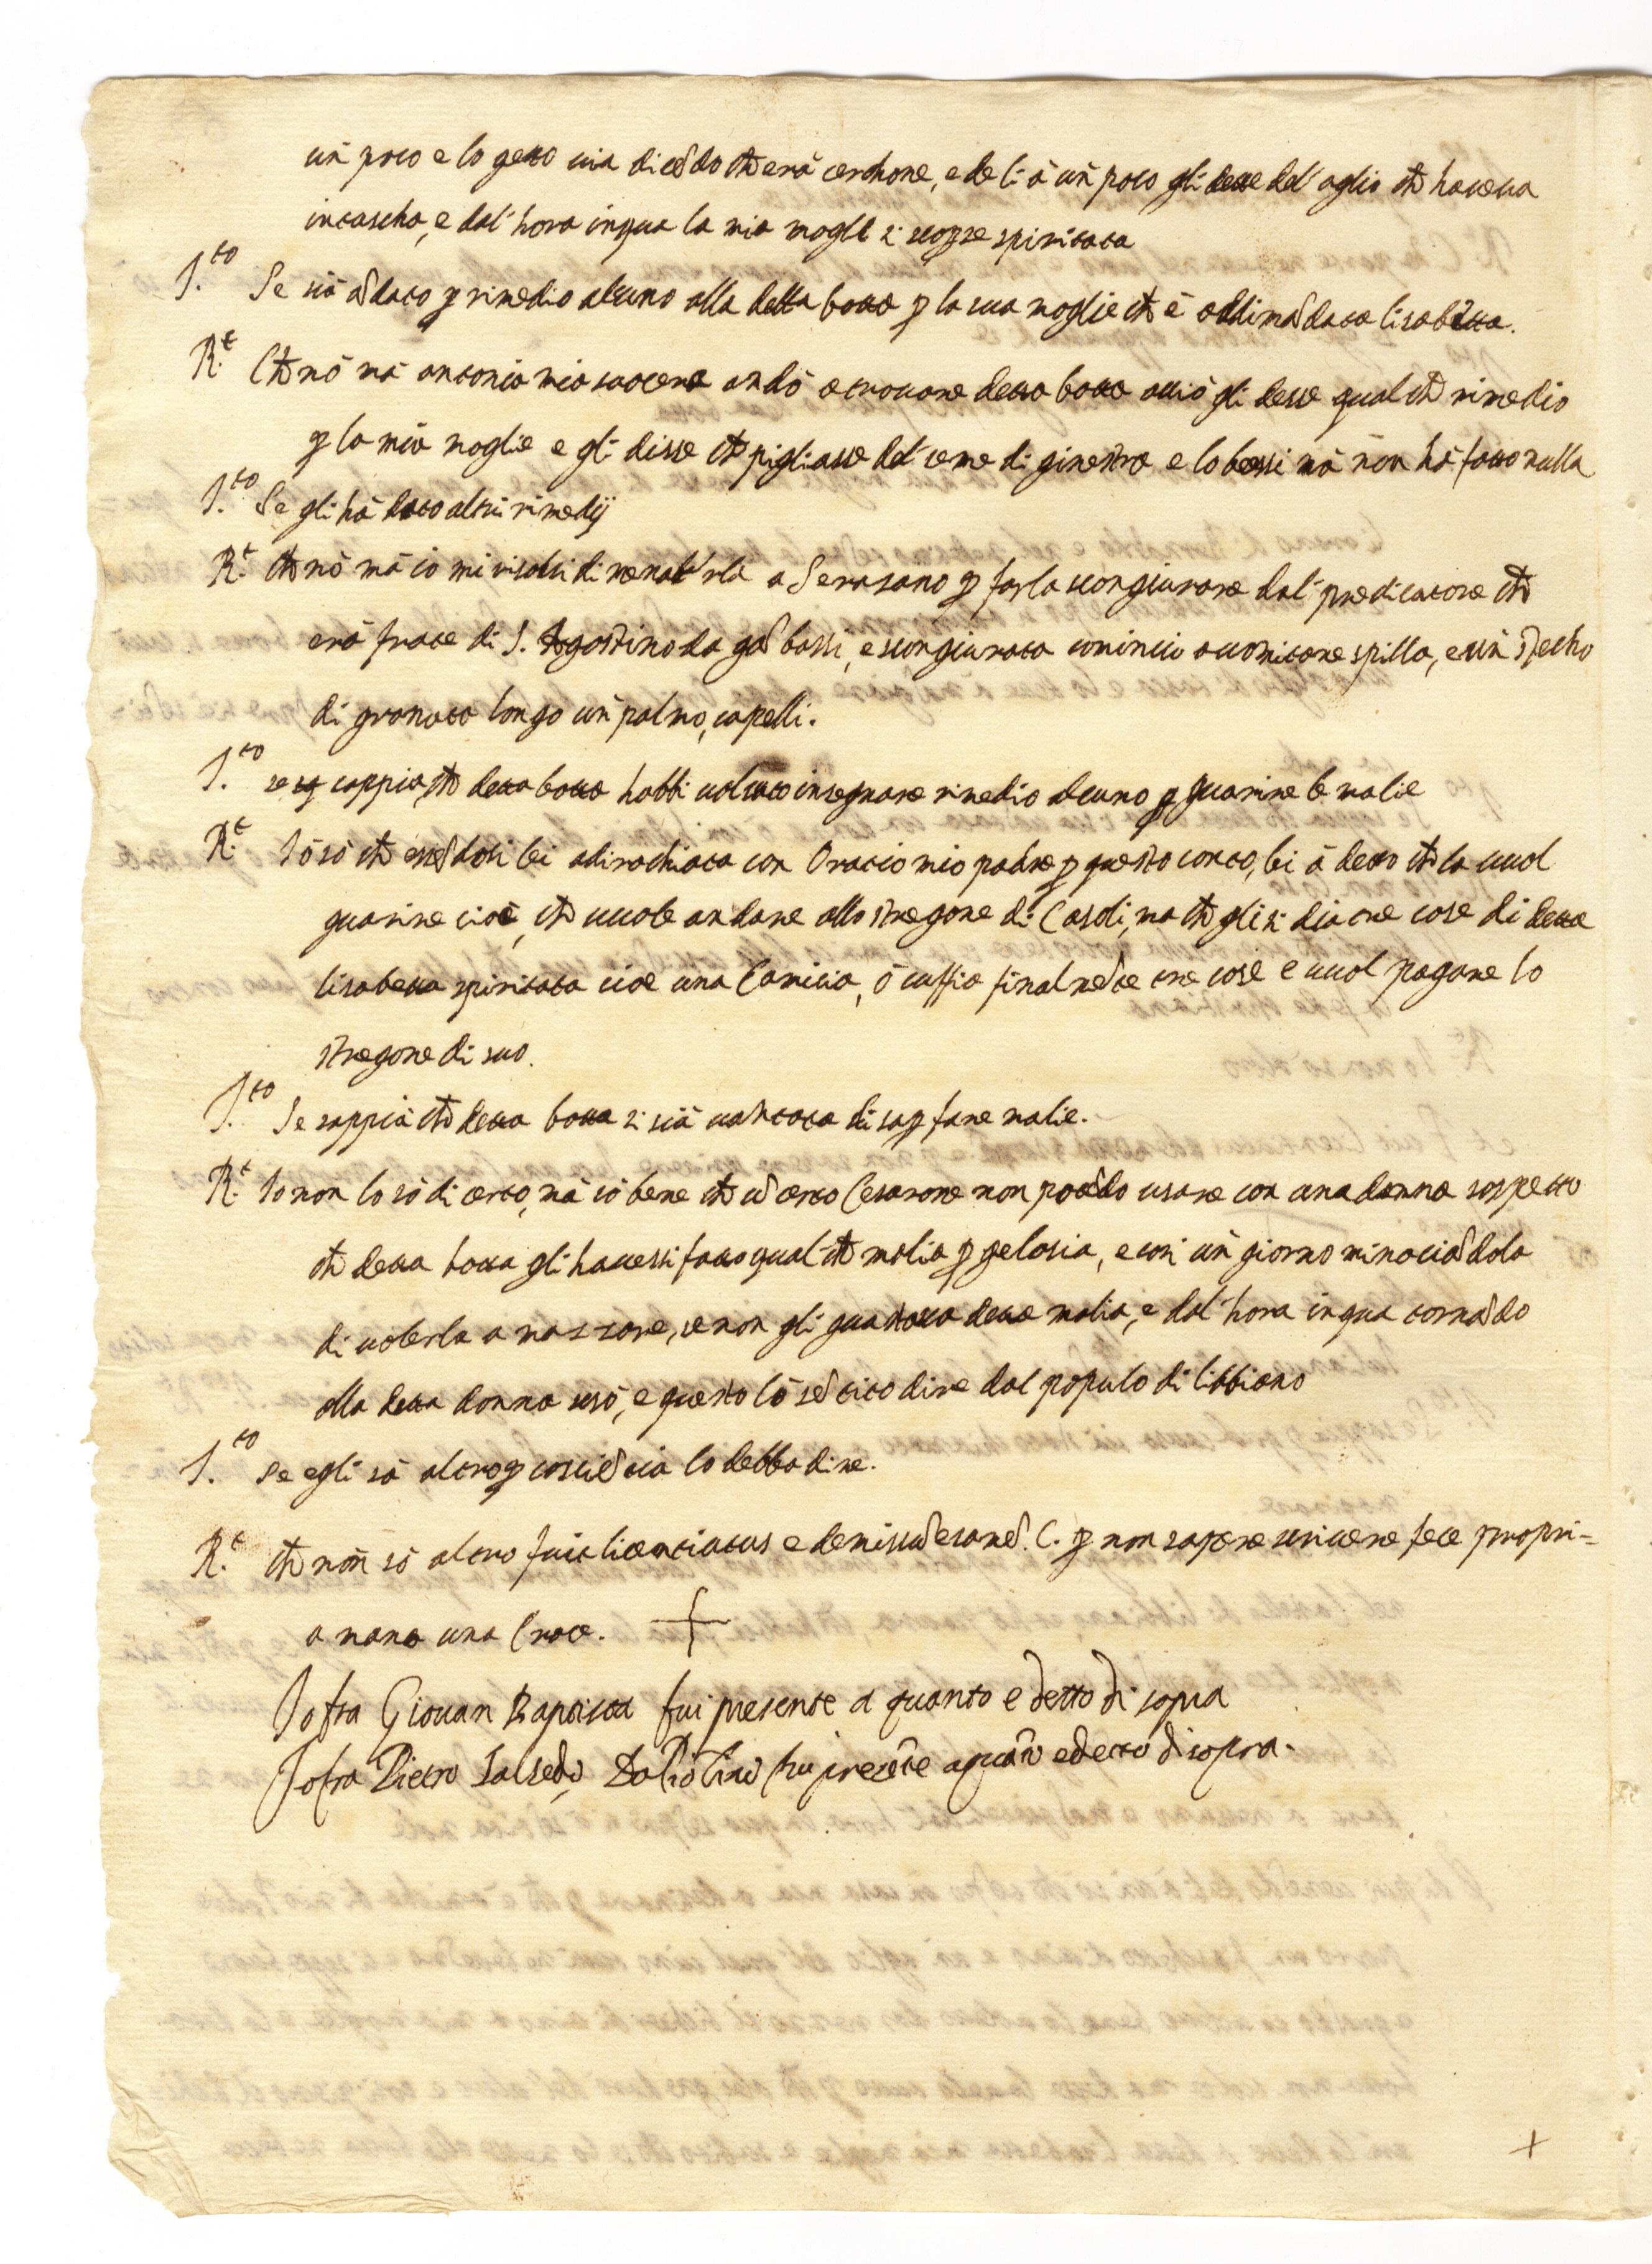 un poco e lo getto via dicẽdo ch̃ erà cerchone, e de li à un poco gli dette del' aglio ch̃ haveva
in tascha, e dal' hora in qua la mia mogle si scopse spiritata
I.to Se sià ãdato ꝑ rimedio alcuno alla detta botta ꝑ la sua moglie ch̃ è addimãdata lisabetta.
R.t Ch̃ nò mà antonio mio suocero andò a trovare detta botta acciò gli desse qual ch̃ rimedio
ꝑ la mia moglie e gli disse ch̃ pigliasse del seme di ginestra e lo bessi mà nòn hà fatto nulla
I.to Se gli hà dato altri rimedij
R.t ch̃ nò mà io mi risolsi di menar'la a Serasano ꝑ farla scongiurare dal' predicatore ch̃
erà frate di S. Agostino da gãbassi, e scongiurata comincio a vomitare spilla, e un stecho
di granata longo un palmo, capelli.
I.to se sappia, ch̃ detta botta habbi voluto insegnare rimedio alcuno ꝑ guarire le malie
R.t Iò sò ch̃ essẽdosi lei adirachiata con Oratio mio padre ꝑ questo conto, lei à detto ch̃ la vuol
guarire cioè, ch̃ vuole andare allo stregone di Casoli, ma ch̃ gli si dia tre cose di detta
lisabetta spiritata cioe una Camicia, ò cuffia finalmẽte tre cose e vuol pagare lo
stregone di suo.
I.to Se sappià ch̃ detta botta si sià vantata di saꝑ fare malie.
R.t Io non lo sò di certo, mà sò bene ch̃ ũ certo Cesarone non potẽdo usare con una donna sospetto
ch̃ detta botta gli havessi fatto qual ch̃ malia ꝑ gelosia, e cosi un giorno minaciãdola
di volerla amazzare, se non gli guastava detta malia, e dal' hora in qua tornãdo
alla detta donna usò, e questo lò sẽtito dire dal populo di libbiano
I.to Se egli sà altro ꝑ cosciẽtia lo debba dire.
R.t ch̃ nòn sò altro fuit licentiatus e ꝑ non sapere scrivere fece propri=
a mano una Croce. +
Io fra Giovan Baptista fui presente a quanto e detto di sopra
Io fra Pietro fui presẽte a quãto e detto di sopra.
+